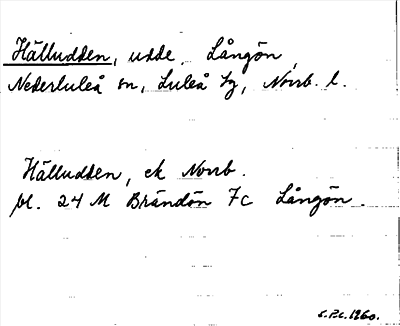 Hälludden, udde, Långön,
Nederluleå sn, Luleå tg, Norrb. l.
Hälludden, ek Norrb.
bl. 24 M Brändön 7c Långön.
S.P.c. 1960.